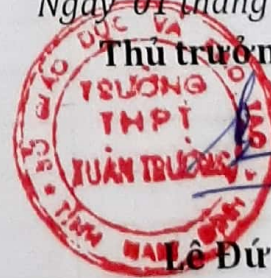 Ngày 01 tháng
Thủ trưởn
SỞ GIÁO DỤC VÀ ĐÀO TẠO
TRƯỜNG
THPT
XUÂN TRƯỜNG
TỈNH NAM ĐỊNH
Lê Đứ